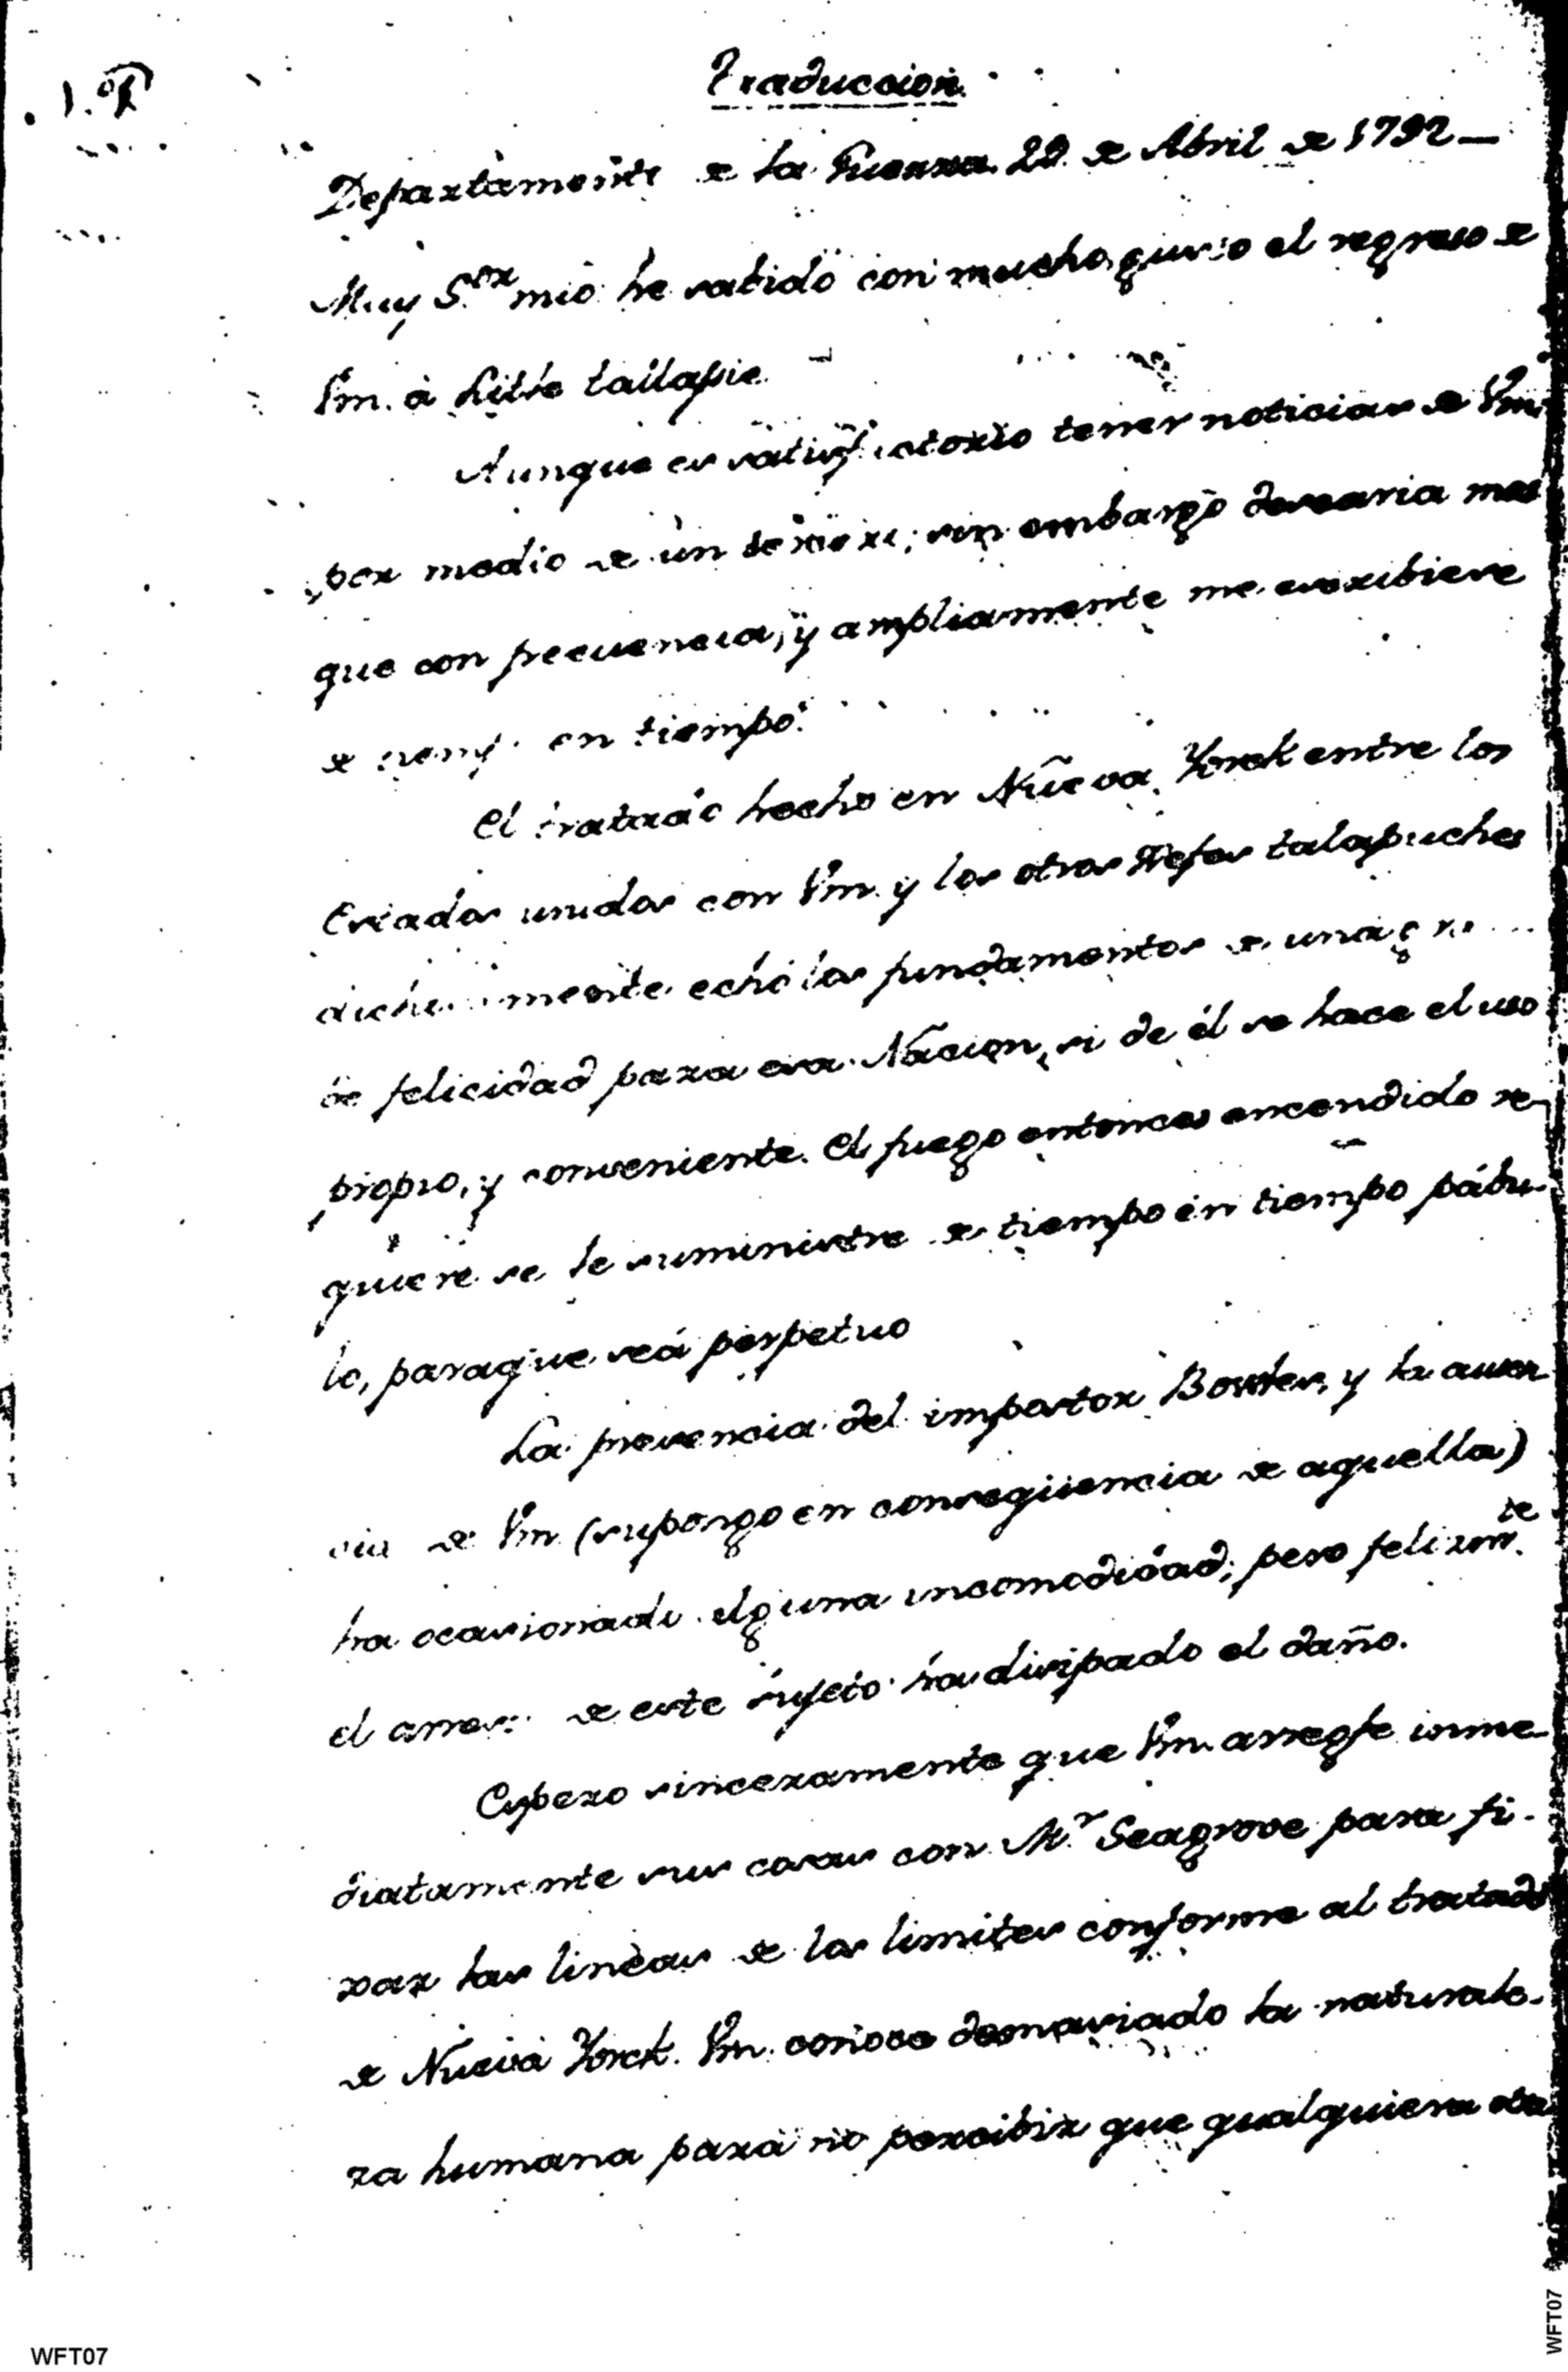 Traduccion.
Departamento de la Guerra 29 de Abril de 1792—
Muy S.or mio he sabido con mucho gusto el regreso de
Vm. à Little tallapsie
Aunque es satisfactorio tener noticias de Vm.
por medio de un tercero; sin embargo desearia mas
que con frecuencia, y ampliamente me escribiese
de tiemp. en tiempo.
El tratado hecho en Nueva Yorck entre los
Estados unidos con Vm. y los otros Xefes talapuches
dichosamente echó los fundamentos de una
de felicidad para esa Nacion, si de él se hace el uso
propio, y conveniente. El fuego entonces encendido re-
quiere se le suministre de tiempo en tiempo pábu-
lo, paraque seá perpetuo
La presencia del impostor Bowles, y la ausen
cia de Vm (supongo en conseqüencia de aquella)
ha ocasionado alguna incomodidad; pero felizm.te
el arresto de este sujeto ha disipado el daño.
Espero sinceramente que Vm. arregle inme-
diatamente sus cosas con M.r Seagrove para fi-
xar las lineas de los limites conforme al tratado
de Nueva Yorck. Vm. conoce demasiado la naturale-
za humana para no percibir que qualquiera
WFT07
WFT07